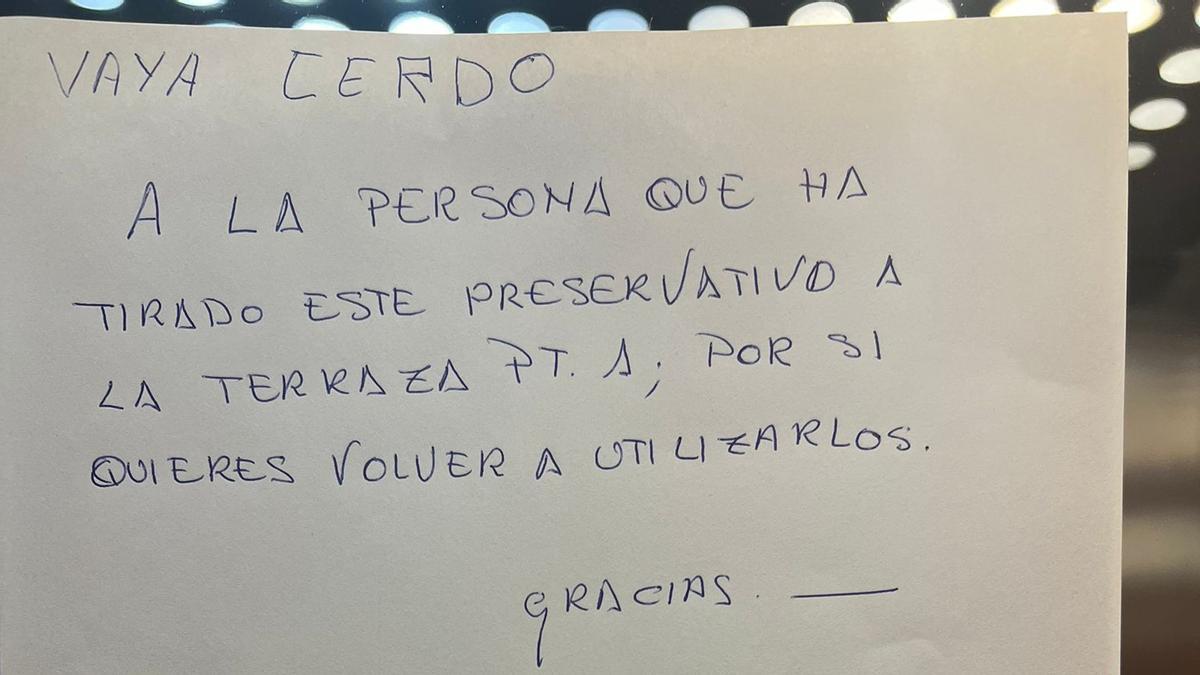 VAYA CERDO
A LA PERSONA QUE HA
TIRADO ESTE PRESERVATIVO A
LA TERRAZA PT. A; POR SI
QUIERES VOLVER A UTILIZARLOS.
GRACIAS. —